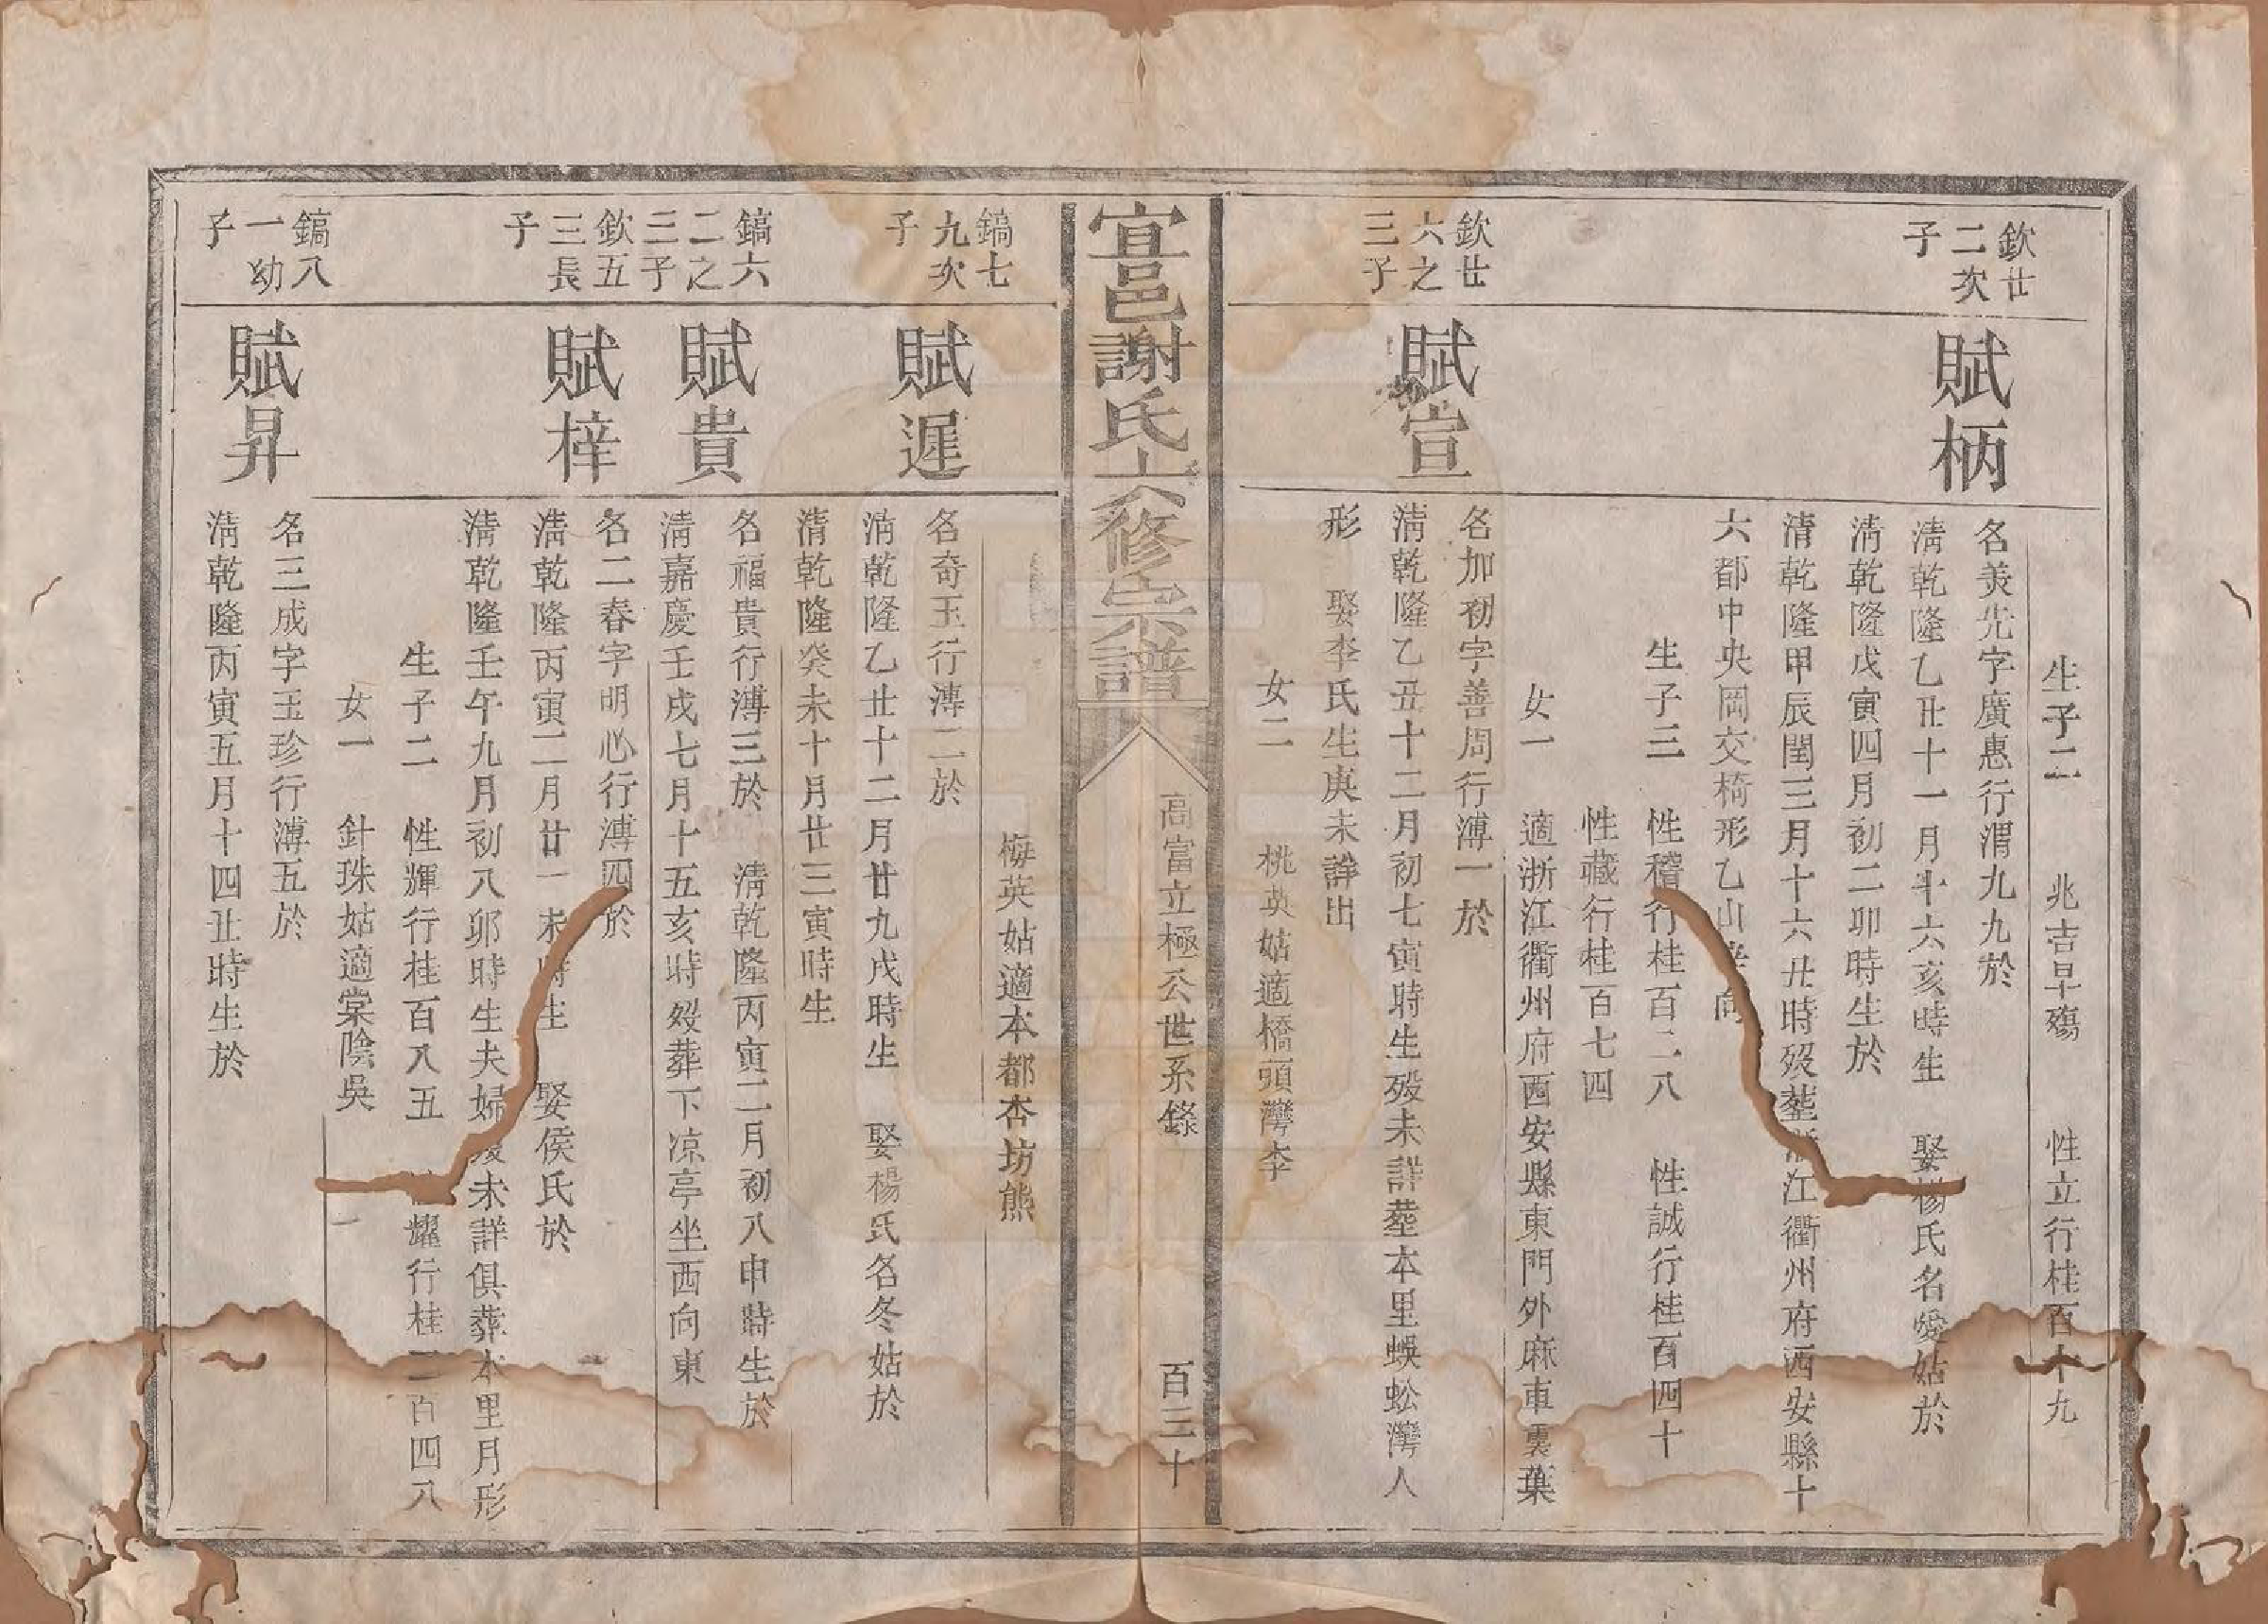 生子二 兆吉早殤 性立行桂百十九
欽廿
二次
子
賦柄
名美光字廣惠行渭九九於
清乾隆乙丑十一月十六亥時生 娶楊氏名愛姑於
清乾隆戊寅四月初二卯時生於
清乾隆甲辰閏三月十六丑時歿塟浙江衢州府西安縣十
六都中央岡交椅形乙山 向
生子三 性稽行桂百二八 性誠行桂百四十
性藏行桂百七四
女一 適浙江衢州府西安縣東門外麻車裏葉
欽廿
六之
三子
賦宣
名加初字善周行溥一於
清乾隆乙丑十二月初七寅時生歿未詳塟本里蜈蚣灣人
形 娶李氏生庚未詳出
女二 桃英姑適橋頭灣李
宜邑謝氏六修宗譜
高富立極公世系錄
百三十
梅英姑適本都杏坊熊
鎬七
九次
子
賦遲
名奇玉行溥二於
清乾隆乙丑十二月廿九戌時生 娶楊氏名冬姑於
清乾隆癸未十月廿三寅時生
鎬六
二之
三子
賦貴
名福貴行溥三於 清乾隆丙寅二月初八申時生於
清嘉慶壬戌七月十五亥時歿葬下凉亭坐西向東
欽五
三長
子
賦梓
名二春字明必行溥四於
清乾隆丙寅二月廿一未時生 娶侯氏於
清乾隆壬午九月初八卯時生夫婦歿未詳俱葬本里月形
生子二 性輝行桂百八五 耀行桂二百四八
女一 針珠姑適棠陰吳
鎬八
一幼
子
賦昇
名三成字玉珍行溥五於
清乾隆丙寅五月十四丑時生於